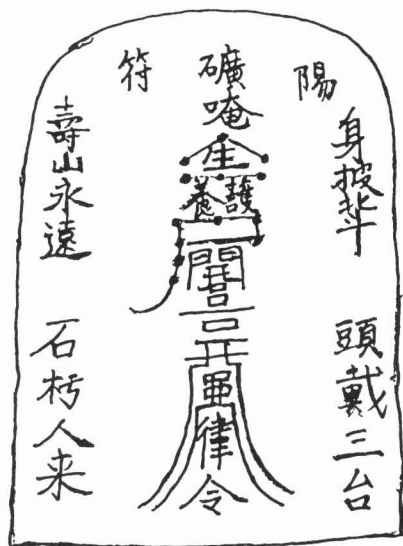 陽礦符
身披北斗
頭戴三台
唵
護養
律令
壽山永遠
石朽人来